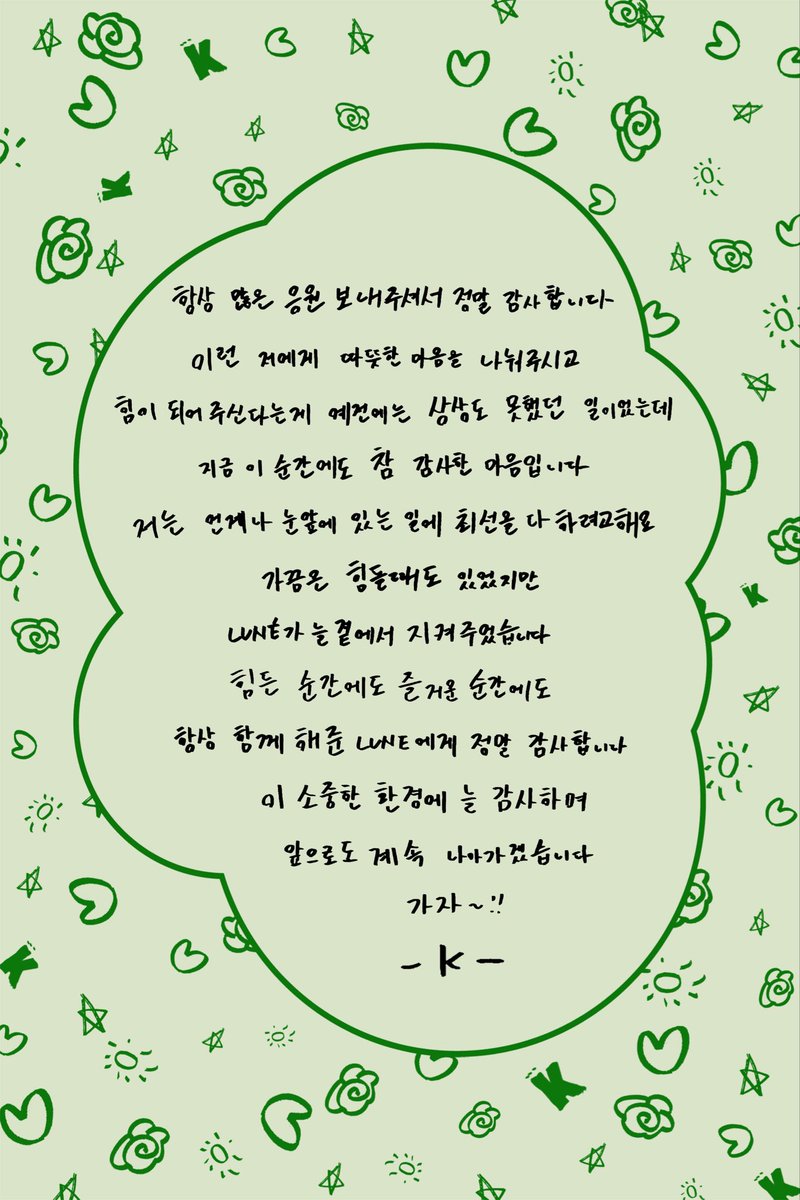 항상 많은 응원 보내주셔서 정말 감사합니다
이런 저에게 따뜻한 마음을 나눠주시고
힘이 되어 주신다는게 예전에는 상상도 못했던 일이었는데
지금 이 순간에도 참 감사한 마음입니다
저는 언제나 눈앞에 있는 일에 최선을 다 하려고해요
가끔은 힘들때도 있었지만
LUNÉ가 늘 곁에서 지켜주었습니다
힘든 순간에도 즐거운 순간에도
항상 함께 해준 LUNÉ에게 정말 감사합니다
이 소중한 환경에 늘 감사하며
앞으로도 계속 나아가겠습니다
가자~!!
- K -